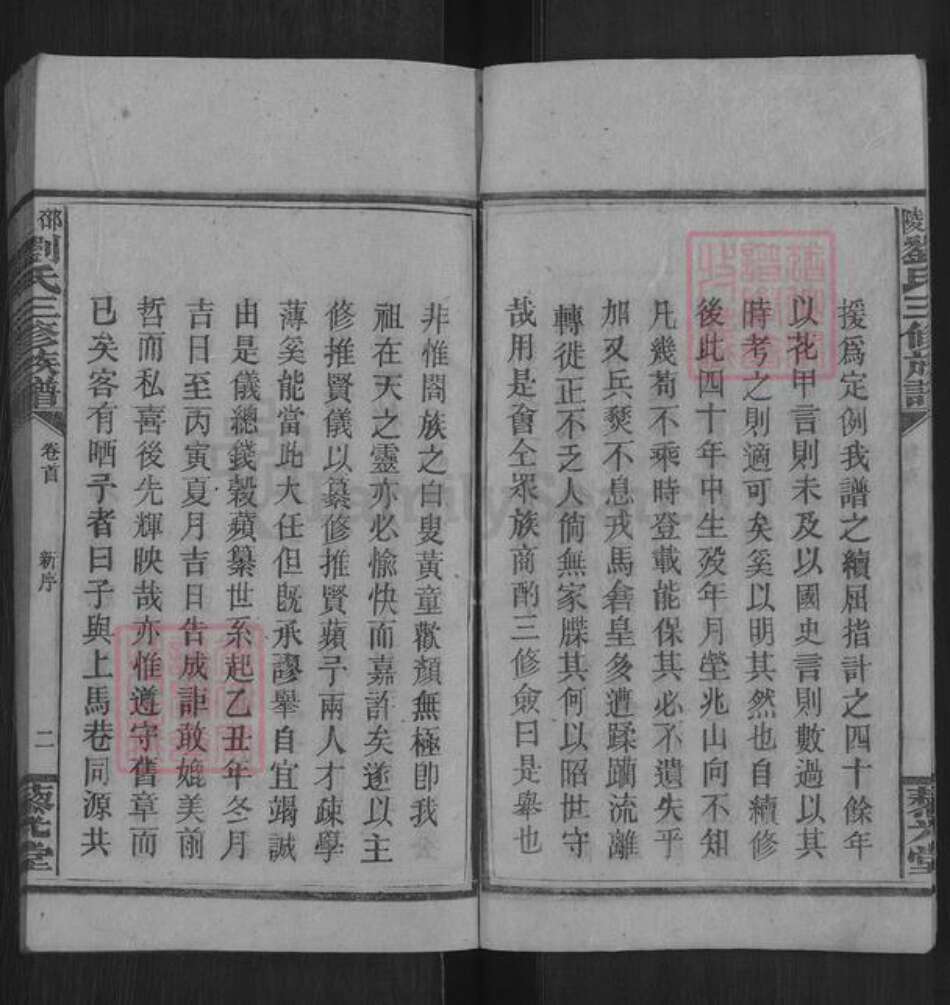 陵劉氏三修族譜
援爲定例我譜之續屈指計之四十餘年
以花甲言則未及以國史言則數過以其
時考之則適可矣奚以明其然也自續修
後此四十年中生歿年月塋兆山向不知
凡幾苟不乘時登載能保其必不遺失乎
加又兵燹不息戎馬倉皇多遭蹂躪流離
轉徙正不乏人倘無家牒其何以昭世守
哉用是會仝眾族商酌三修僉曰是舉也
非惟閤族之白叟黃童歡顏無極卽我
祖在天之靈亦必愉快而嘉許矣遂以主
修推賢儀以纂修推賢蘋予兩人才疎學
薄奚能當此大任但既承謬舉自宜竭誠
由是儀總錢穀蘋纂世系起乙丑年冬月
吉日至丙寅夏月吉日告成詎敢媲美前
哲而私喜後先輝映哉亦惟遵守舊章而
已矣客有哂予者曰子與上馬巷同源共
邵劉氏三修族譜 卷首 新序 二
FamilySearch